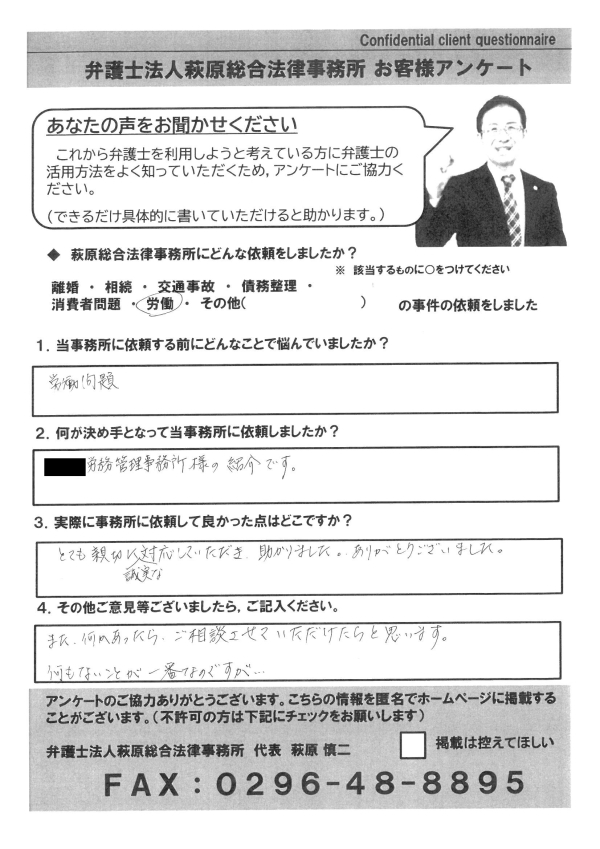 Confidential client questionnaire
弁護士法人萩原総合法律事務所 お客様アンケート
あなたの声をお聞かせください
これから弁護士を利用しようと考えている方に弁護士の
活用方法をよく知っていただくため，アンケートにご協力く
ださい。
（できるだけ具体的に書いていただけると助かります。）
◆ 萩原総合法律事務所にどんな依頼をしましたか？
※ 該当するものに○をつけてください
離婚 ・ 相続 ・ 交通事故 ・ 債務整理 ・
消費者問題 ・ 労働 ・ その他（ ） の事件の依頼をしました
１．当事務所に依頼する前にどんなことで悩んでいましたか？
労働問題
２．何が決め手となって当事務所に依頼しましたか？
労務管理事務所様の紹介です。
３．実際に事務所に依頼して良かった点はどこですか？
とても親切に対応していただき、助かりました。ありがとうございました。
誠実な
４．その他ご意見等ございましたら，ご記入ください。
また、何かあったら、ご相談させていただけたらと思います。
何もないことが一番なのですが…
アンケートのご協力ありがとうございます。こちらの情報を匿名でホームページに掲載する
ことがございます。（不許可の方は下記にチェックをお願いします）
弁護士法人萩原総合法律事務所 代表 萩原 慎二
掲載は控えてほしい
FAX：0296-48-8895